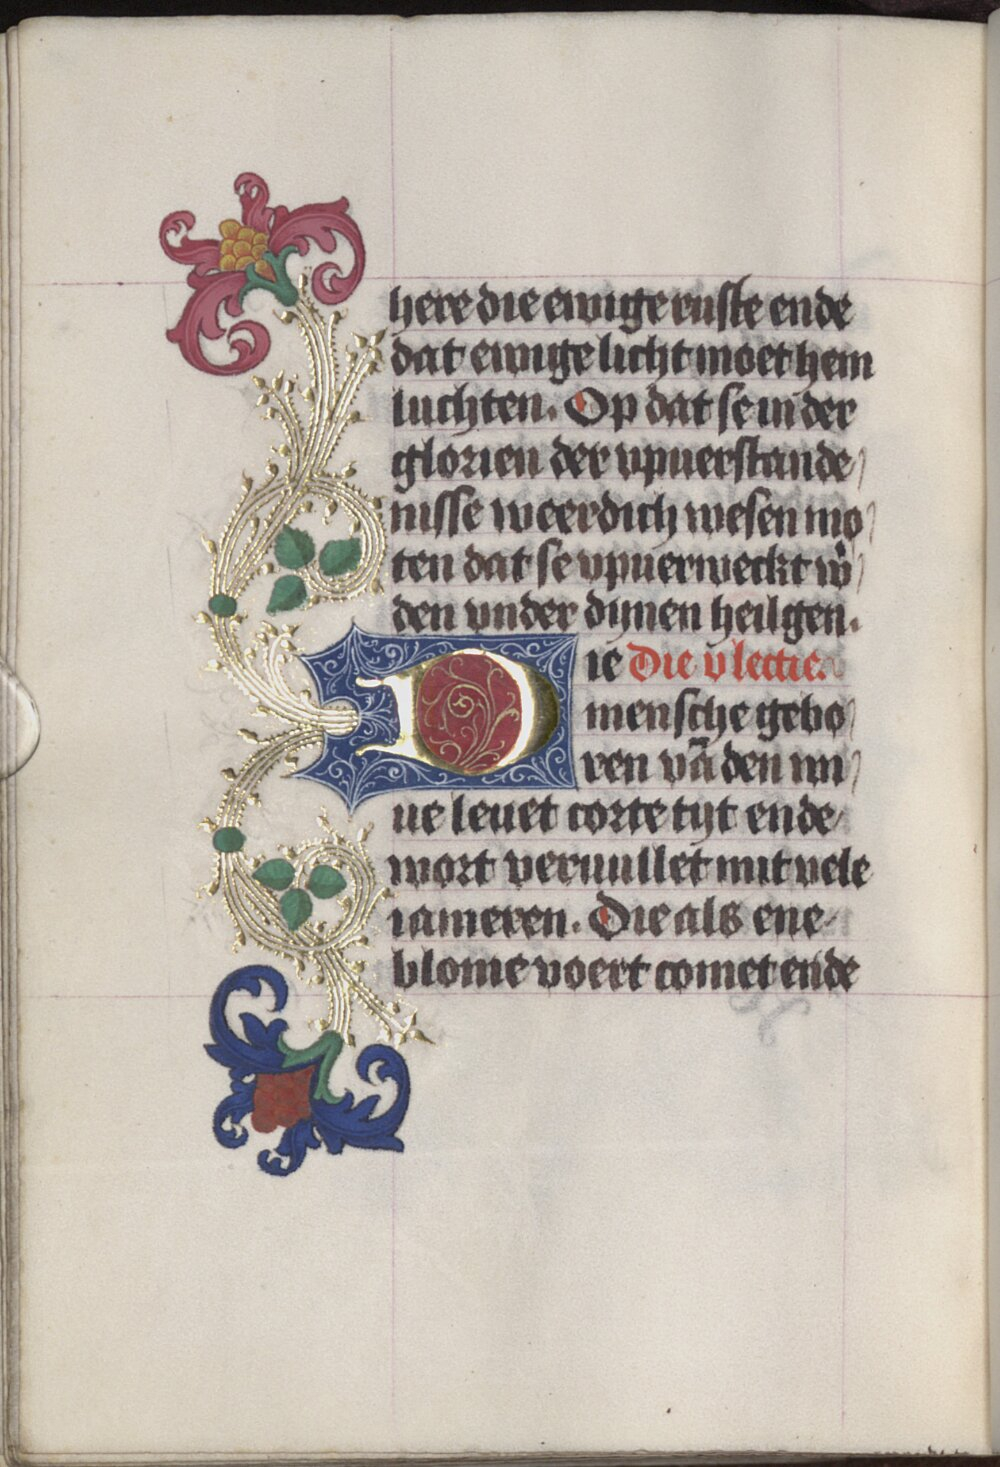 here die ewige ruste ende
dat ewige licht moet hem
luchten. Op dat se in der
glorien der vpuerstande/
nisse weerdich wesen mo/
ten dat se vpuerweckt w̄/
den vnder dijnen heilgen.
Die Die v lectie.
mensche gebo/
ren vā den wi/
ue leuet corte tijt ende/
wort veruullet mit vele
iameren. Die als ene/
blome voert comet ende